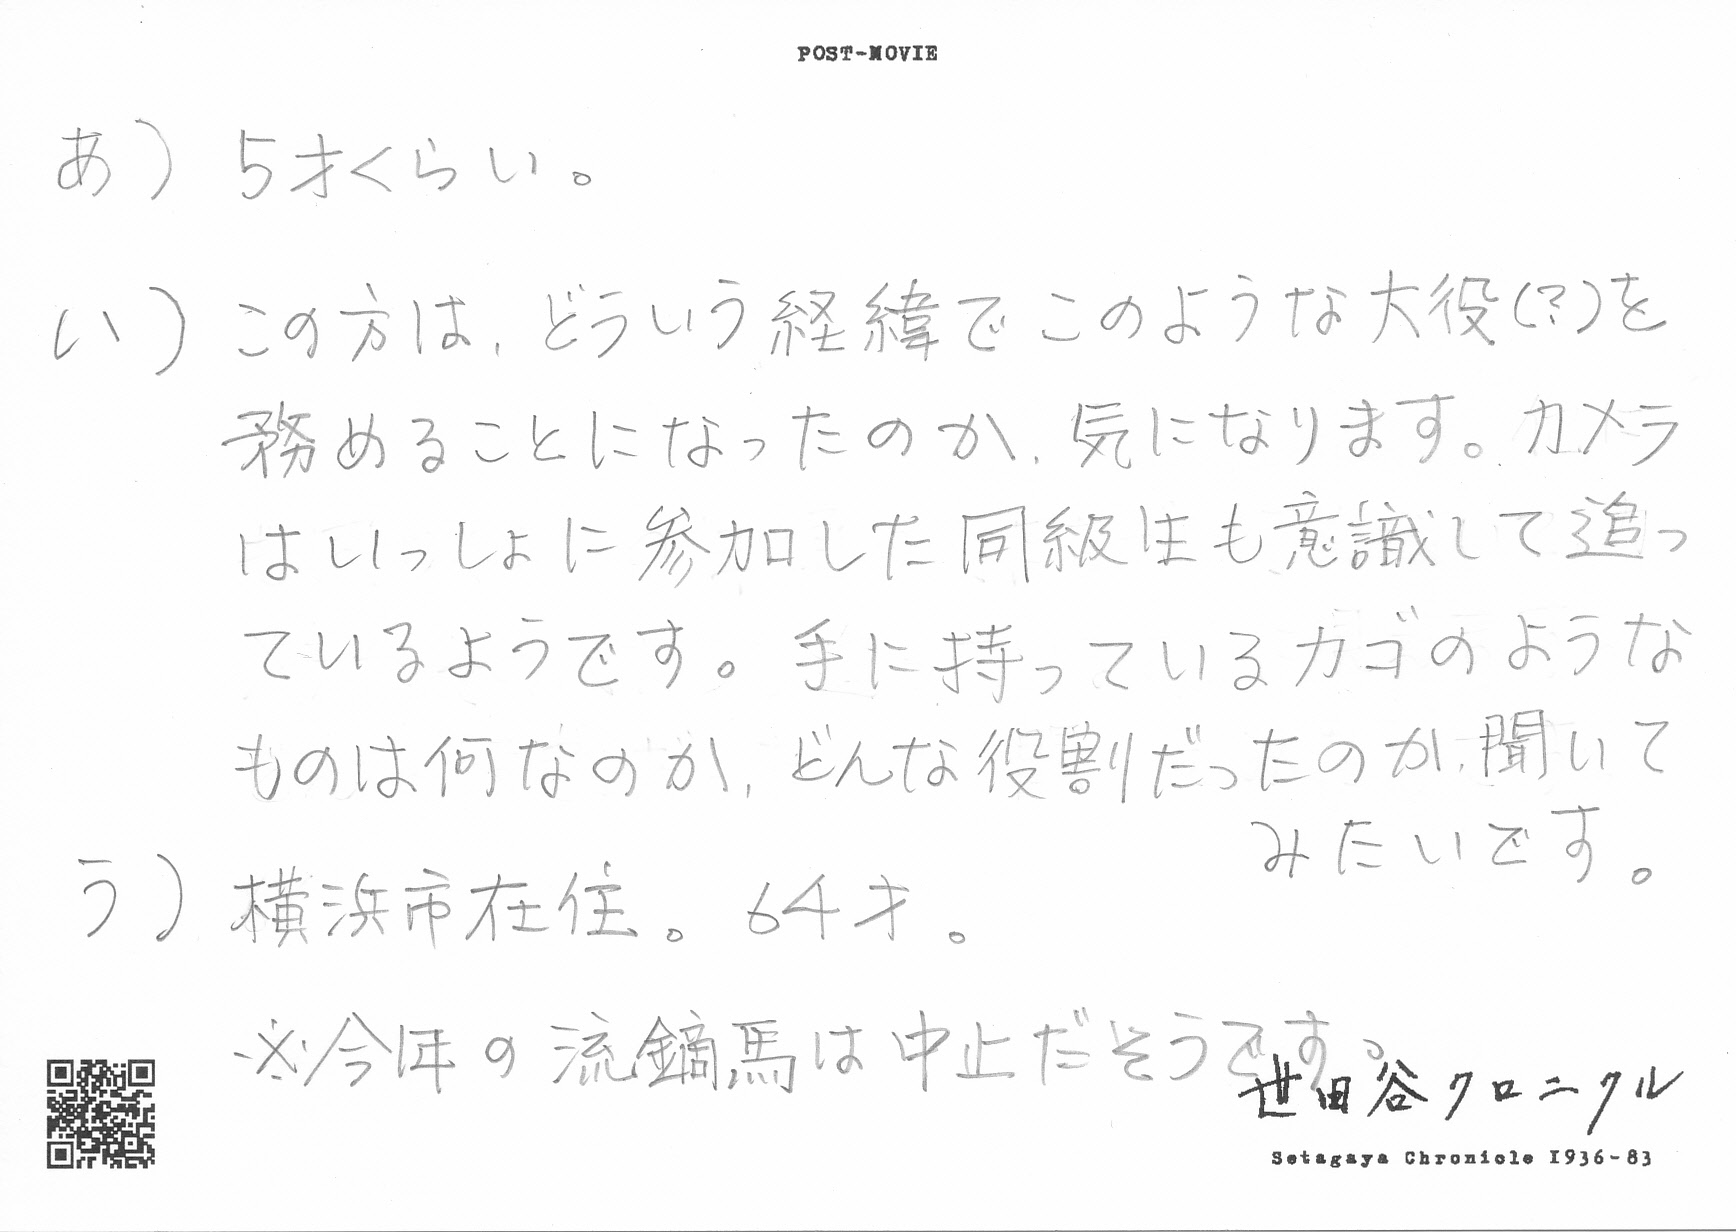 POST-MOVIE
あ) 5才くらい。
い) この方は、どういう経緯でこのような大役(?)を
務めることになったのか、気になります。カメラ
はいっしょに参加した同級生も意識して追っ
ているようです。手に持っているカゴのような
ものは何なのか、どんな役割だったのか、聞いて
みたいです。
う) 横浜市在住。64才。
※今年の流鏑馬は中止だそうです。
世田谷クロニクル
Setagaya Chronicle 1936-83